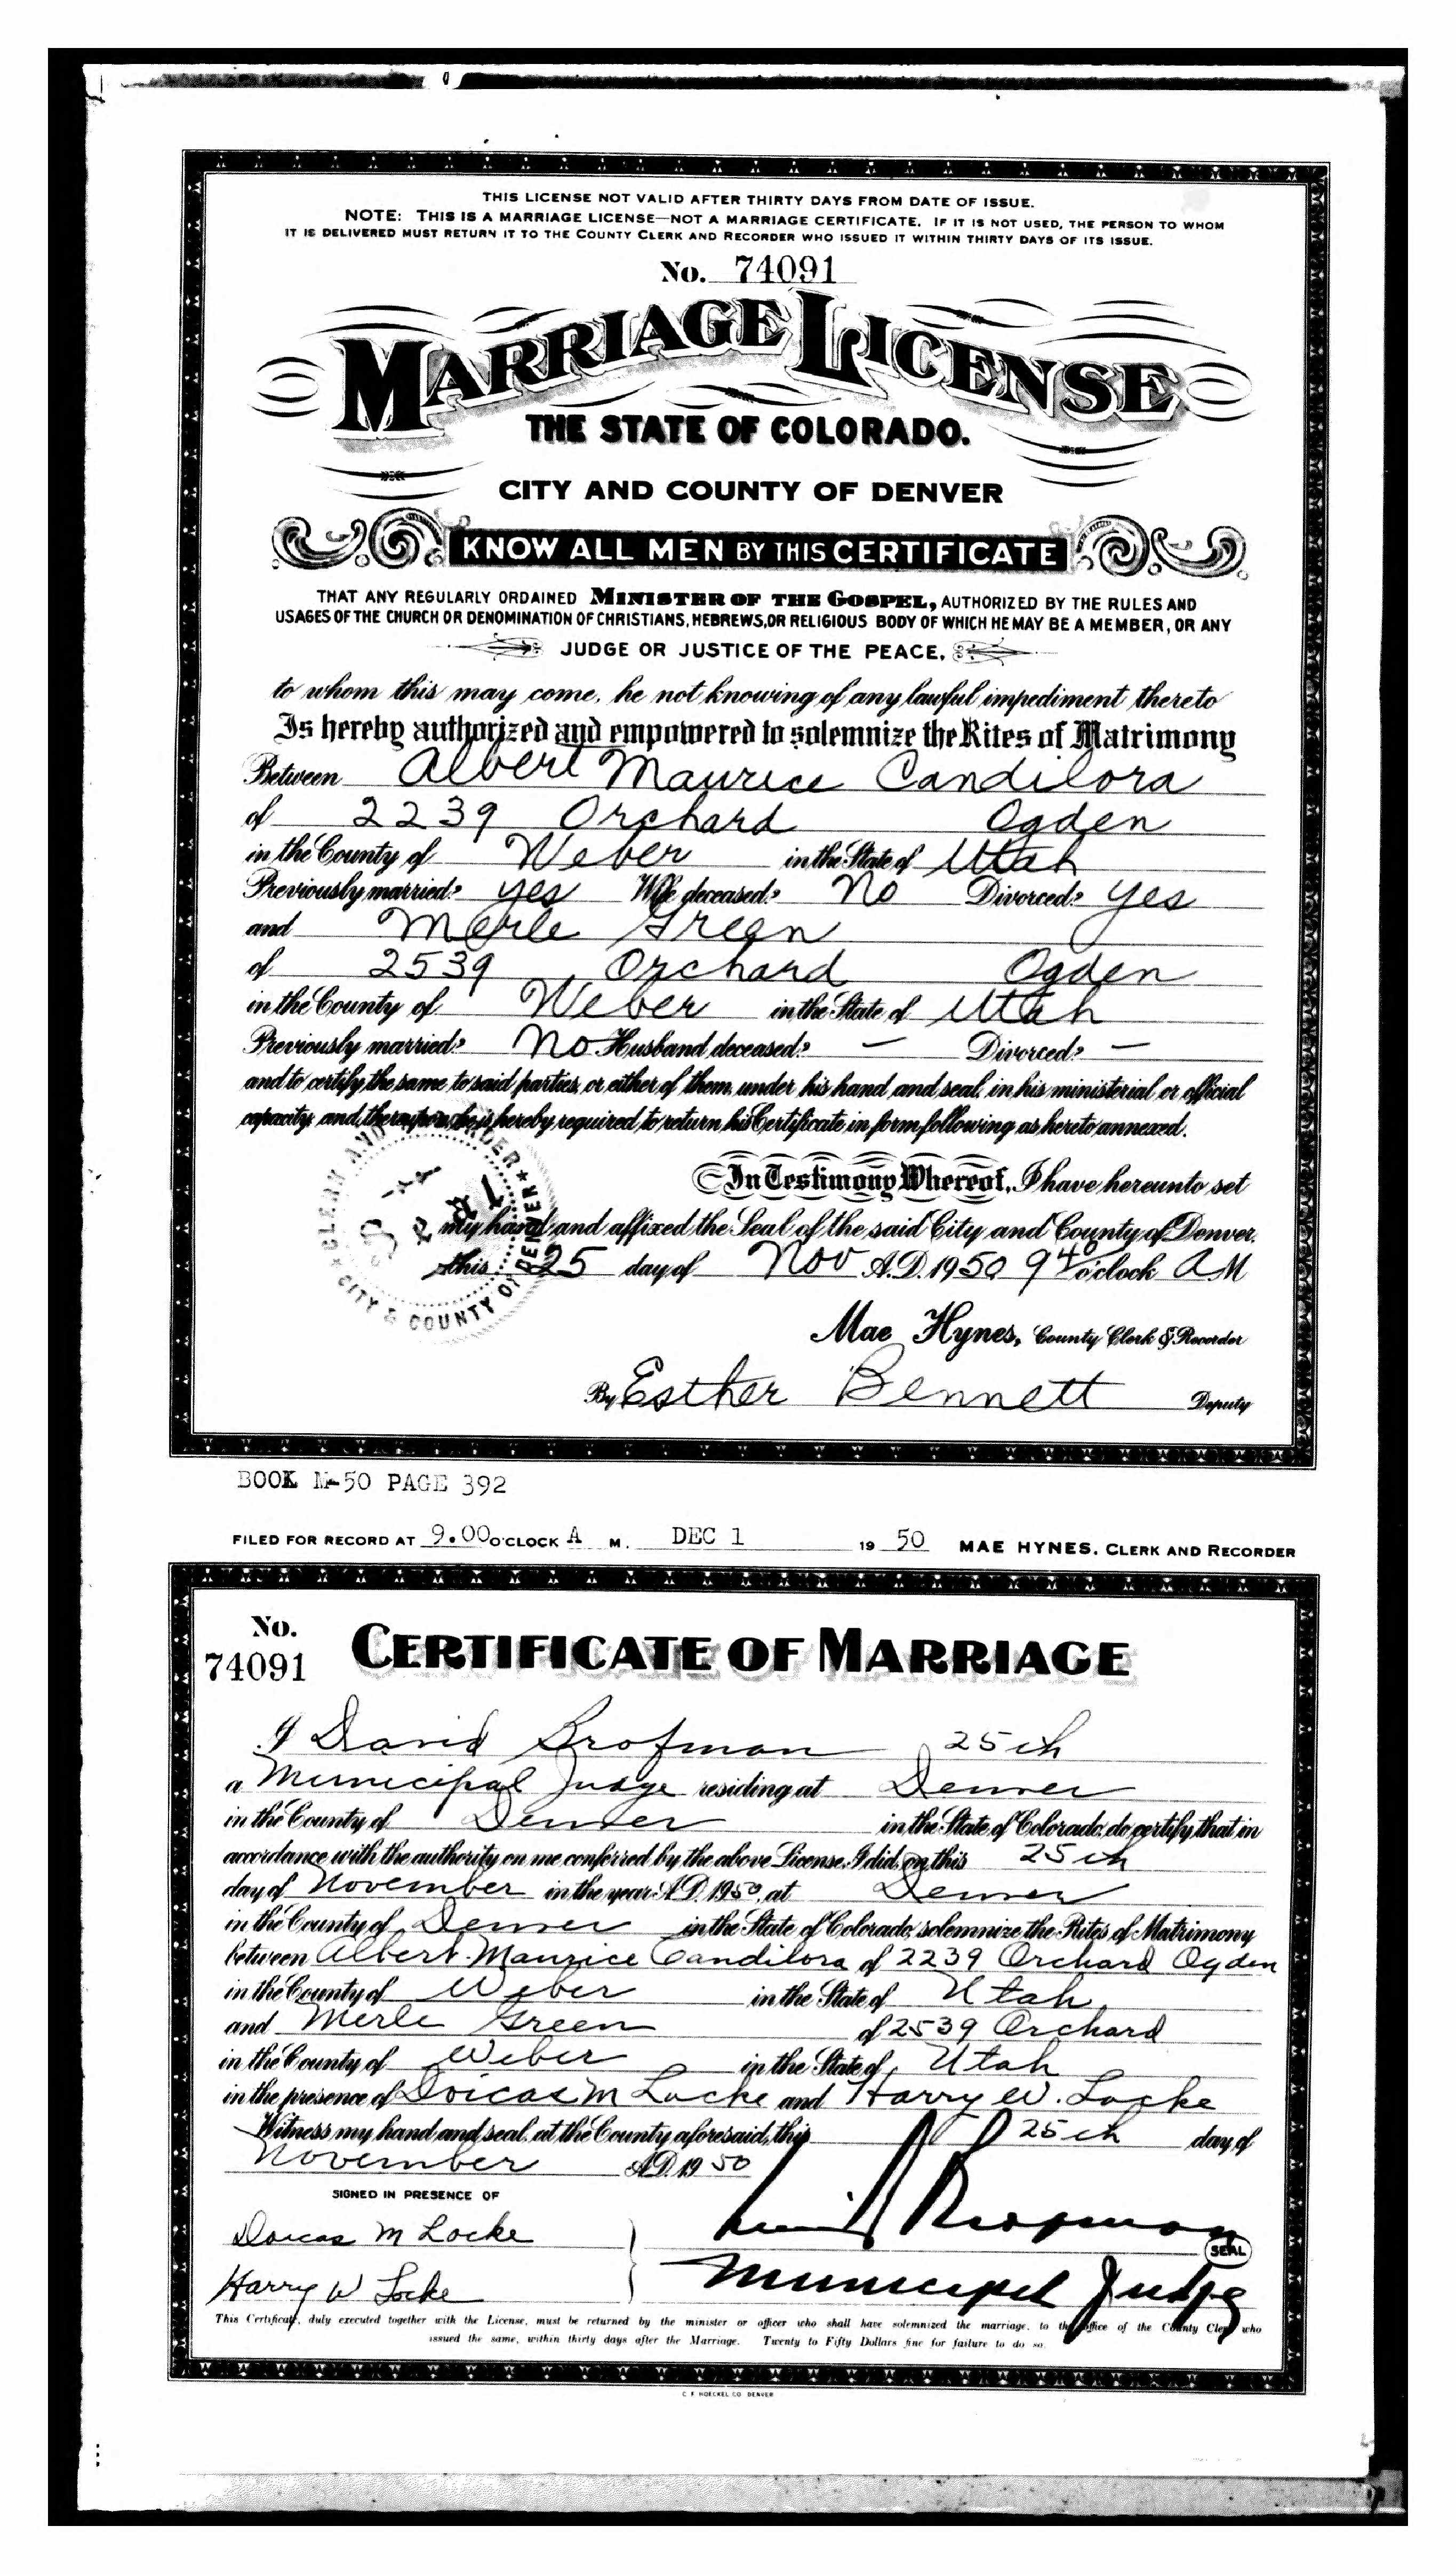 THIS LICENSE NOT VALID AFTER THIRTY DAYS FROM DATE OF ISSUE.
NOTE: THIS IS A MARRIAGE LICENSE—NOT A MARRIAGE CERTIFICATE. IF IT IS NOT USED, THE PERSON TO WHOM
IT IS DELIVERED MUST RETURN IT TO THE COUNTY CLERK AND RECORDER WHO ISSUED IT WITHIN THIRTY DAYS OF ITS ISSUE.
No. 74091
MARRIAGE LICENSE
THE STATE OF COLORADO.
CITY AND COUNTY OF DENVER
KNOW ALL MEN BY THIS CERTIFICATE
THAT ANY REGULARLY ORDAINED MINISTER OF THE GOSPEL, AUTHORIZED BY THE RULES AND
USAGES OF THE CHURCH OR DENOMINATION OF CHRISTIANS, HEBREWS, OR RELIGIOUS BODY OF WHICH HE MAY BE A MEMBER, OR ANY
JUDGE OR JUSTICE OF THE PEACE,
to whom this may come, he not knowing of any lawful impediment thereto
Is hereby authorized and empowered to solemnize the Rites of Matrimony
Between Albert Maurice Candilora
of 2239 Orchard Ogden
in the County of Weber in the State of Utah
Previously married? yes Wife deceased? No Divorced? yes
and Merle Green
of 2539 Orchard Ogden
in the County of Weber in the State of Utah
Previously married? No Husband deceased? — Divorced? —
and to certify the same to said parties, or either of them, under his hand and seal, in his ministerial or official
capacity and thereupon he is hereby required to return his Certificate in form following as hereto annexed.
In Testimony Whereof, I have hereunto set
my hand and affixed the Seal of the said City and County of Denver,
this 25 day of Nov A.D. 1950 9 40 o'clock A M
CLERK AND RECORDER
CITY & COUNTY OF DENVER
Mae Hynes, County Clerk & Recorder
By Esther Bennett Deputy
BOOK M-50 PAGE 392
FILED FOR RECORD AT 9.00 O'CLOCK A M. DEC 1 19 50 MAE HYNES, CLERK AND RECORDER
No.
74091
CERTIFICATE OF MARRIAGE
I David Brofman 25th
a Municipal Judge residing at Denver
in the County of Denver in the State of Colorado, do certify that in
accordance with the authority on me conferred by the above License, I did, on this 25th
day of November in the year A.D. 1950, at Denver
in the County of Denver in the State of Colorado, solemnize the Rites of Matrimony
between Albert Maurice Candilora of 2239 Orchard Ogden
in the County of Weber in the State of Utah
and Merle Green of 2539 Orchard
in the County of Weber in the State of Utah
in the presence of Dorcas M Locke and Harry W. Locke
Witness my hand and seal, at the County aforesaid, this 25th day of
November A.D. 19 50
SIGNED IN PRESENCE OF
Dorcas M Locke
David Brofman
SEAL
Harry W Locke
Municipal Judge
This Certificate, duly executed together with the License, must be returned by the minister or officer who shall have solemnized the marriage, to the office of the County Clerk who
issued the same, within thirty days after the Marriage. Twenty to Fifty Dollars fine for failure to do so.
C. F. HOECKEL CO. DENVER